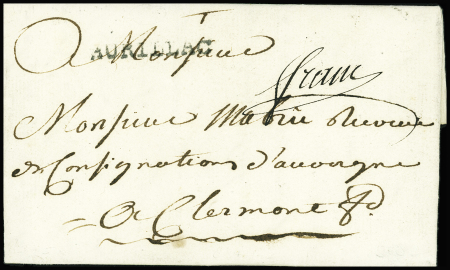 A Monsieur
AURILLAC
franc
Monsieur Receveur
des Consignations d'auvergne
A Clermont fd.